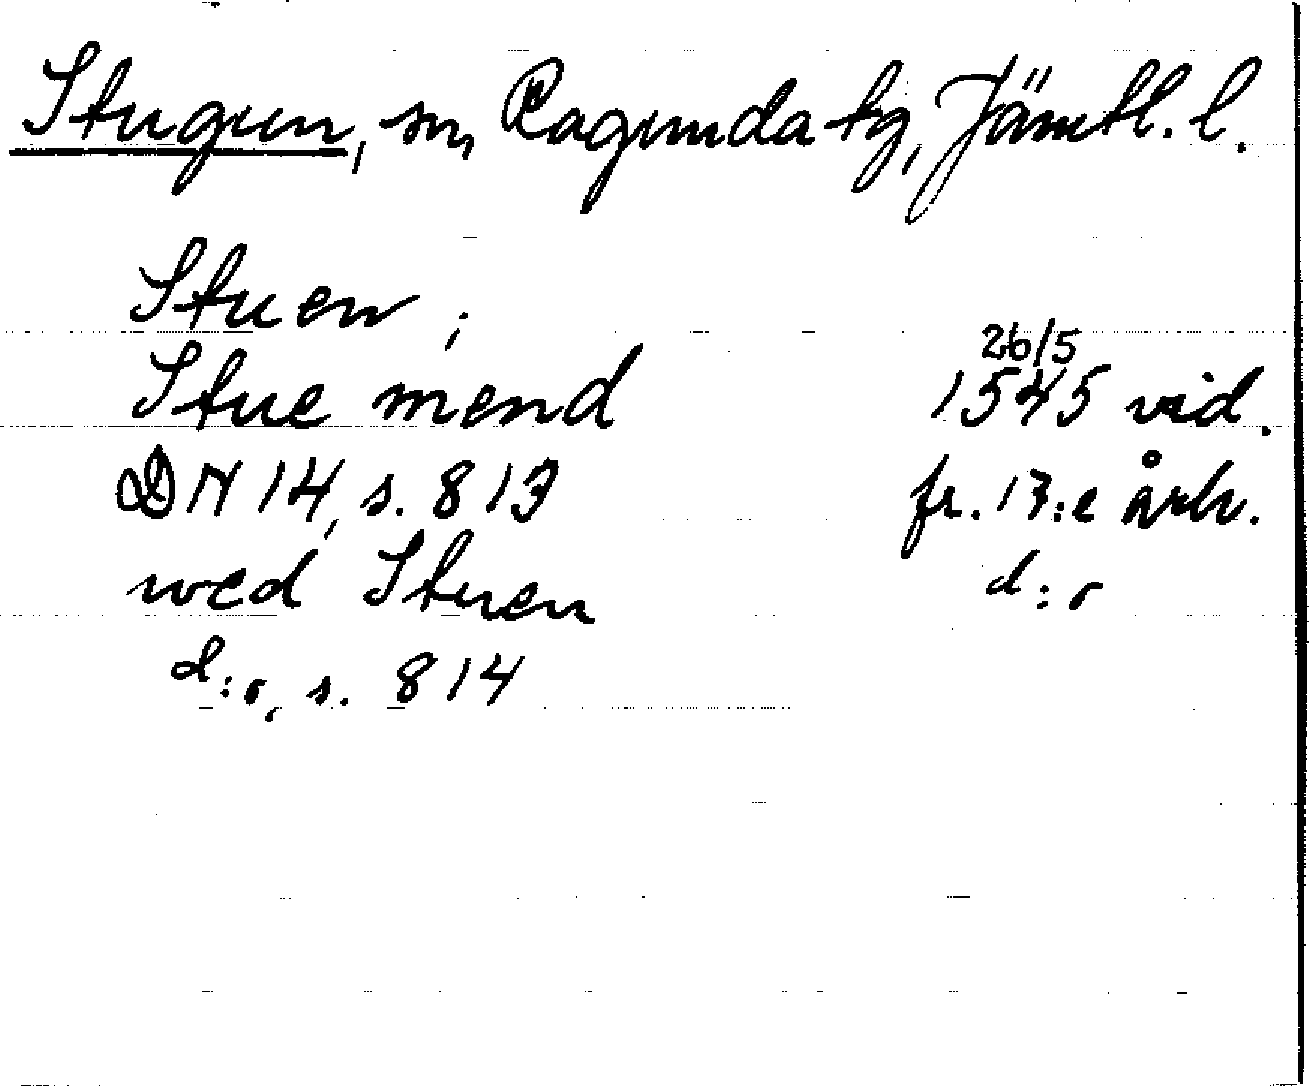 Stugun, sn, Ragunda tg, Jämtl. l.
Stuen ;
Stue mend 26/5 1545 vid.
DN 14, s. 813 fr. 17:e årh.
wed Stuen d:o
d:o, s. 814